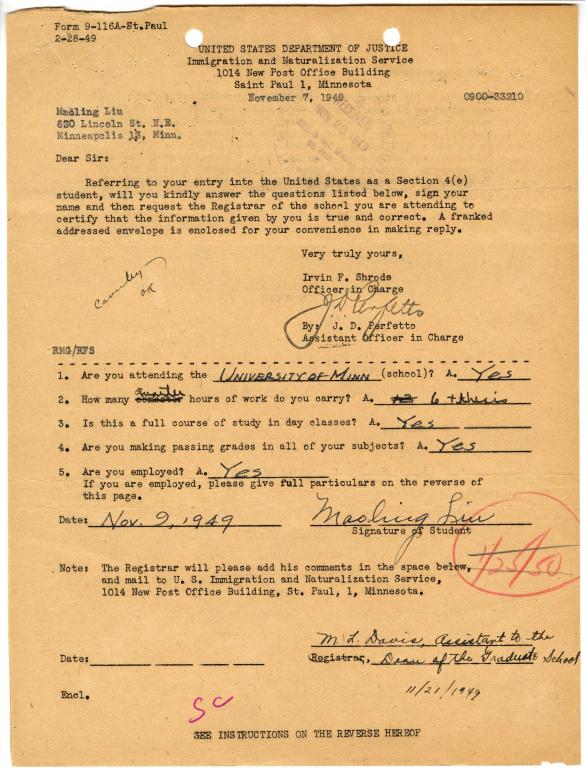 Form 9-116A-St.Paul
2-28-49
UNITED STATES DEPARTMENT OF JUSTICE
Immigration and Naturalization Service
1014 New Post Office Building
Saint Paul 1, Minnesota
November 7, 1949
0900-33210
Maoling Liu
630 Lincoln St. N.E.
Minneapolis 13, Minn.
Dear Sir:
Referring to your entry into the United States as a Section 4(e)
student, will you kindly answer the questions listed below, sign your
name and then request the Registrar of the school you are attending to
certify that the information given by you is true and correct. A franked
addressed envelope is enclosed for your convenience in making reply.
Very truly yours,
Irvin F. Shrode
Officer in Charge
J D Perfetto
By: J. D. Perfetto
Assistant Officer in Charge
OK
RMG/RFS
1. Are you attending the UNIVERSITY OF MINN (school)? A. Yes
2. How many quarter semester hours of work do you carry? A. 12 6 + thesis
3. Is this a full course of study in day classes? A. Yes
4. Are you making passing grades in all of your subjects? A. Yes
5. Are you employed? A. Yes
If you are employed, please give full particulars on the reverse of
this page.
Date: Nov. 9, 1949 Maoling Liu
Signature of Student
1/25/50
Note: The Registrar will please add his comments in the space below,
and mail to U. S. Immigration and Naturalization Service,
1014 New Post Office Building, St. Paul, 1, Minnesota.
M. L. Davis, Assistant to the
Date: Registrar, Dean of the Graduate School
11/21/1949
Encl.
SC
SEE INSTRUCTIONS ON THE REVERSE HEREOF